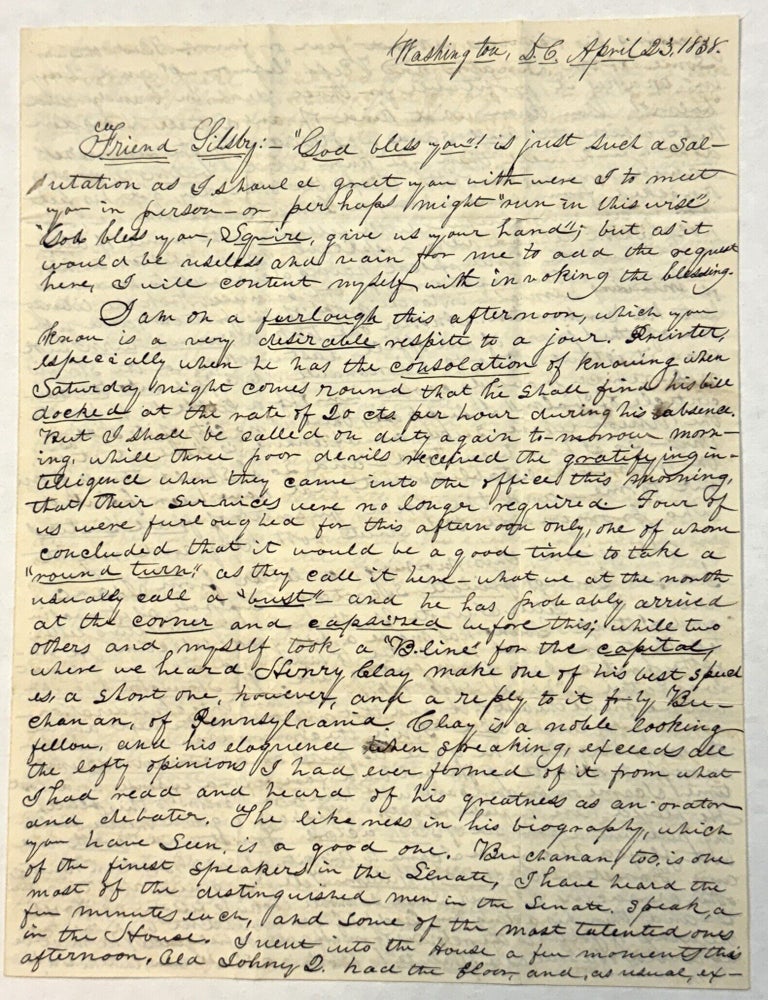 Washington, D.C. April 23, 1838.
Friend Silsby:- "God bless you"! is just such a sal-
utation as I should greet you with were I to meet
you in person - or perhaps might "run in this wise"
"God bless you, Squire, give us your hand"; but as it
would be useless and vain for me to add the request
here, I will content myself with invoking the blessing.
I am on a furlough this afternoon, which you
know is a very desirable respite to a jour. Printer,
especially when he has the consolation of knowing when
Saturday night comes round that he shall find his bill
docked at the rate of 20 cts per hour during his absence.
But I shall be called on duty again to-morrow morn-
ing, while three poor devils received the gratifying in-
telligence when they came into the office this morning,
that their services were no longer required. Four of
us were furloughed for this afternoon only, one of whom
concluded that it would be a good time to take a
"round turn," as they call it here - what we at the north
usually call a "bust" - and he has probably arrived
at the corner and capsized before this; while two
others and myself took a "B-line" for the capital,
where we heard Henry Clay make one of his best speech
es, a short one, however, and a reply to it by Bu-
chanan, of Pennsylvania. Clay is a noble looking
fellow, and his eloquence when speaking, exceeds all
the lofty opinions I had ever formed of it from what
I had read and heard of his greatness as an orator
and debater. The likeness in his biography, which
you have seen, is a good one. Buchanan, too, is one
of the finest speakers in the Senate, I have heard the
most of the distinguished men in the Senate speak, a
few minutes each, and some of the most talented ones
in the House. I went into the House a few moments this
afternoon, Old Johny Q. had the floor, and, as usual, ex-